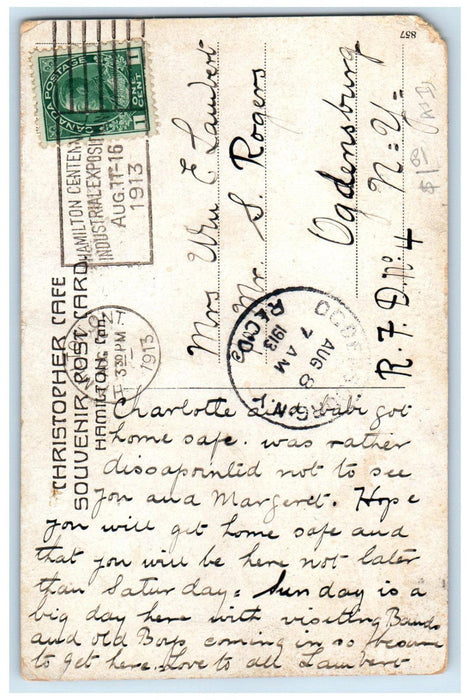 857
CANADA POSTAGE
1 ONE CENT 1
HAMILTON CENTEN
INDUSTRIAL EXPOSI
AUG. 11-16
1913
ONT.
3:30 PM
1913
CHRISTOPHER CAFE
SOUVENIR POST CARD
HAMILTON, Can.
Mrs Wm E Lambert
Mr. S. Rogers
Ogdensburg
N=Y=
R.F.D No 4
OGDENSBURG N.Y.
AUG 8
7 AM
1913
REC'D
Charlotte and babi got
home safe. was rather
dissapointed not to see
you and Margeret. Hope
you will get home safe and
that you will be here not later
than Saturday= Sunday is a
big day here with visiting Bands
and old Boys coming in so be sure
to get here. Love to all Lambert